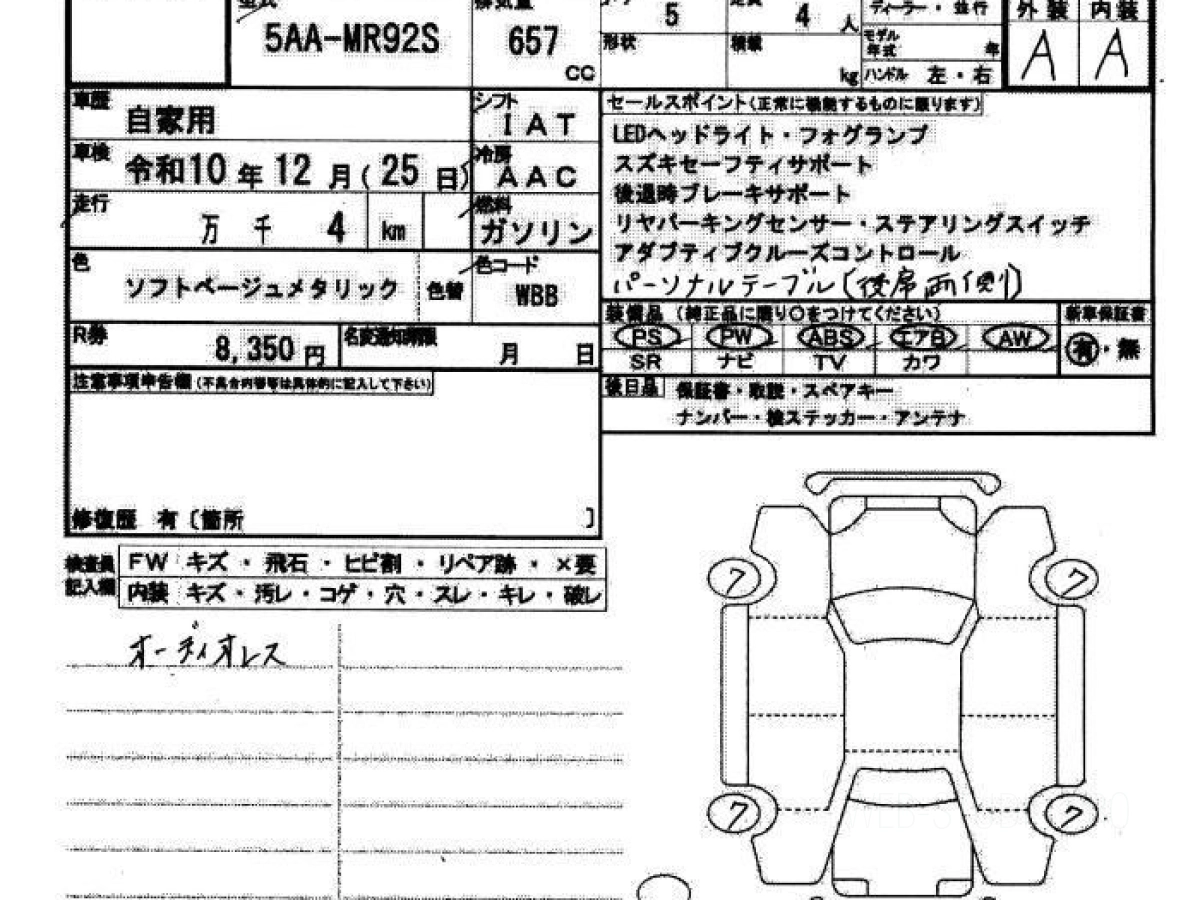 型式 5AA-MR92S
排気量 657 cc
ドア 5
定員 4 人
ディーラー・並行
外装 内装
形状
積載 kg
モデル年式 年
A A
ハンドル 左・右
車歴 自家用
シフト IAT
車検 令和10年12月(25日)
冷房 AAC
走行 万 千 4 km
燃料 ガソリン
色 ソフトベージュメタリック 色替
色コード WBB
R券 8,350 円
名変通知期限 月 日
注意事項申告欄(不具合内容等は具体的に記入して下さい)
修復歴 有〔箇所 〕
セールスポイント(正常に機能するものに限ります)
LEDヘッドライト・フォグランプ
スズキセーフティサポート
後退時ブレーキサポート
リヤパーキングセンサー・ステアリングスイッチ
アダプティブクルーズコントロール
パーソナルテーブル(後席両側)
装備品(純正品に限り○をつけてください)
新車保証書
PS PW ABS エアB AW
有・無
SR ナビ TV カワ
後日品 保証書・取説・スペアキー
ナンバー・検ステッカー・アンテナ
検査員記入欄
FW キズ・飛石・ヒビ割・リペア跡・×要
内装 キズ・汚レ・コゲ・穴・スレ・キレ・破レ
オーディオレス
7 7
7 7